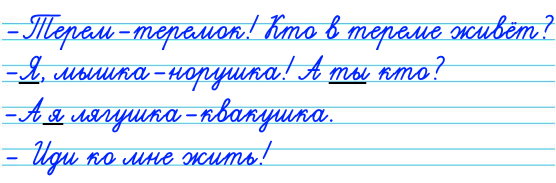 -Терем-теремок! Кто в тереме живёт?
-Я, мышка-норушка! А ты кто?
-А я лягушка-квакушка.
- Иди ко мне жить!